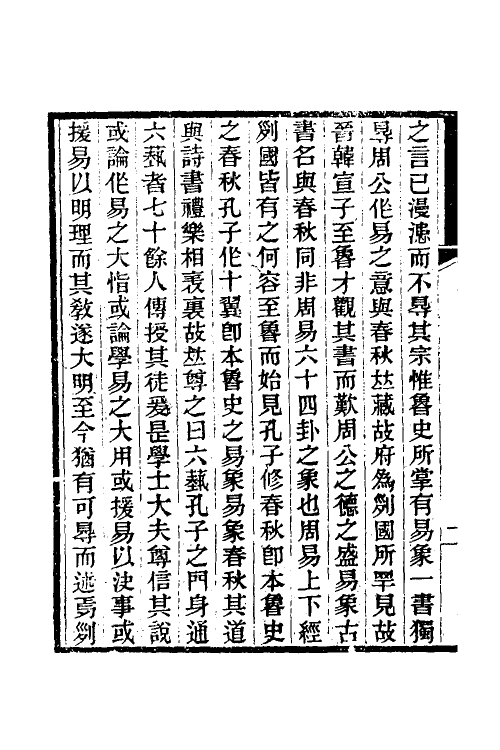 之言已漫漶而不㝵其宗惟魯史所掌有易象一書獨
㝵周公作易之意與春秋㚘藏故府為列國所罕見故
晉韓宣子至魯才觀其書而歎周公之德之盛易象古
書名與春秋同非周易六十四卦之象也周易上下經
列國皆有之何容至魯而始見孔子修春秋卽本魯史
之春秋孔子作十翼卽本魯史之易象易象春秋其道
與詩書禮樂相表裏故㚘尊之曰六蓺孔子之門身通
六蓺者七十餘人傳授其徒爰是學士大夫尊信其說
或論作易之大恉或論學易之大用或援易以決事或
援易以明理而其敎遂大明至今猶有可尋而述焉列
二